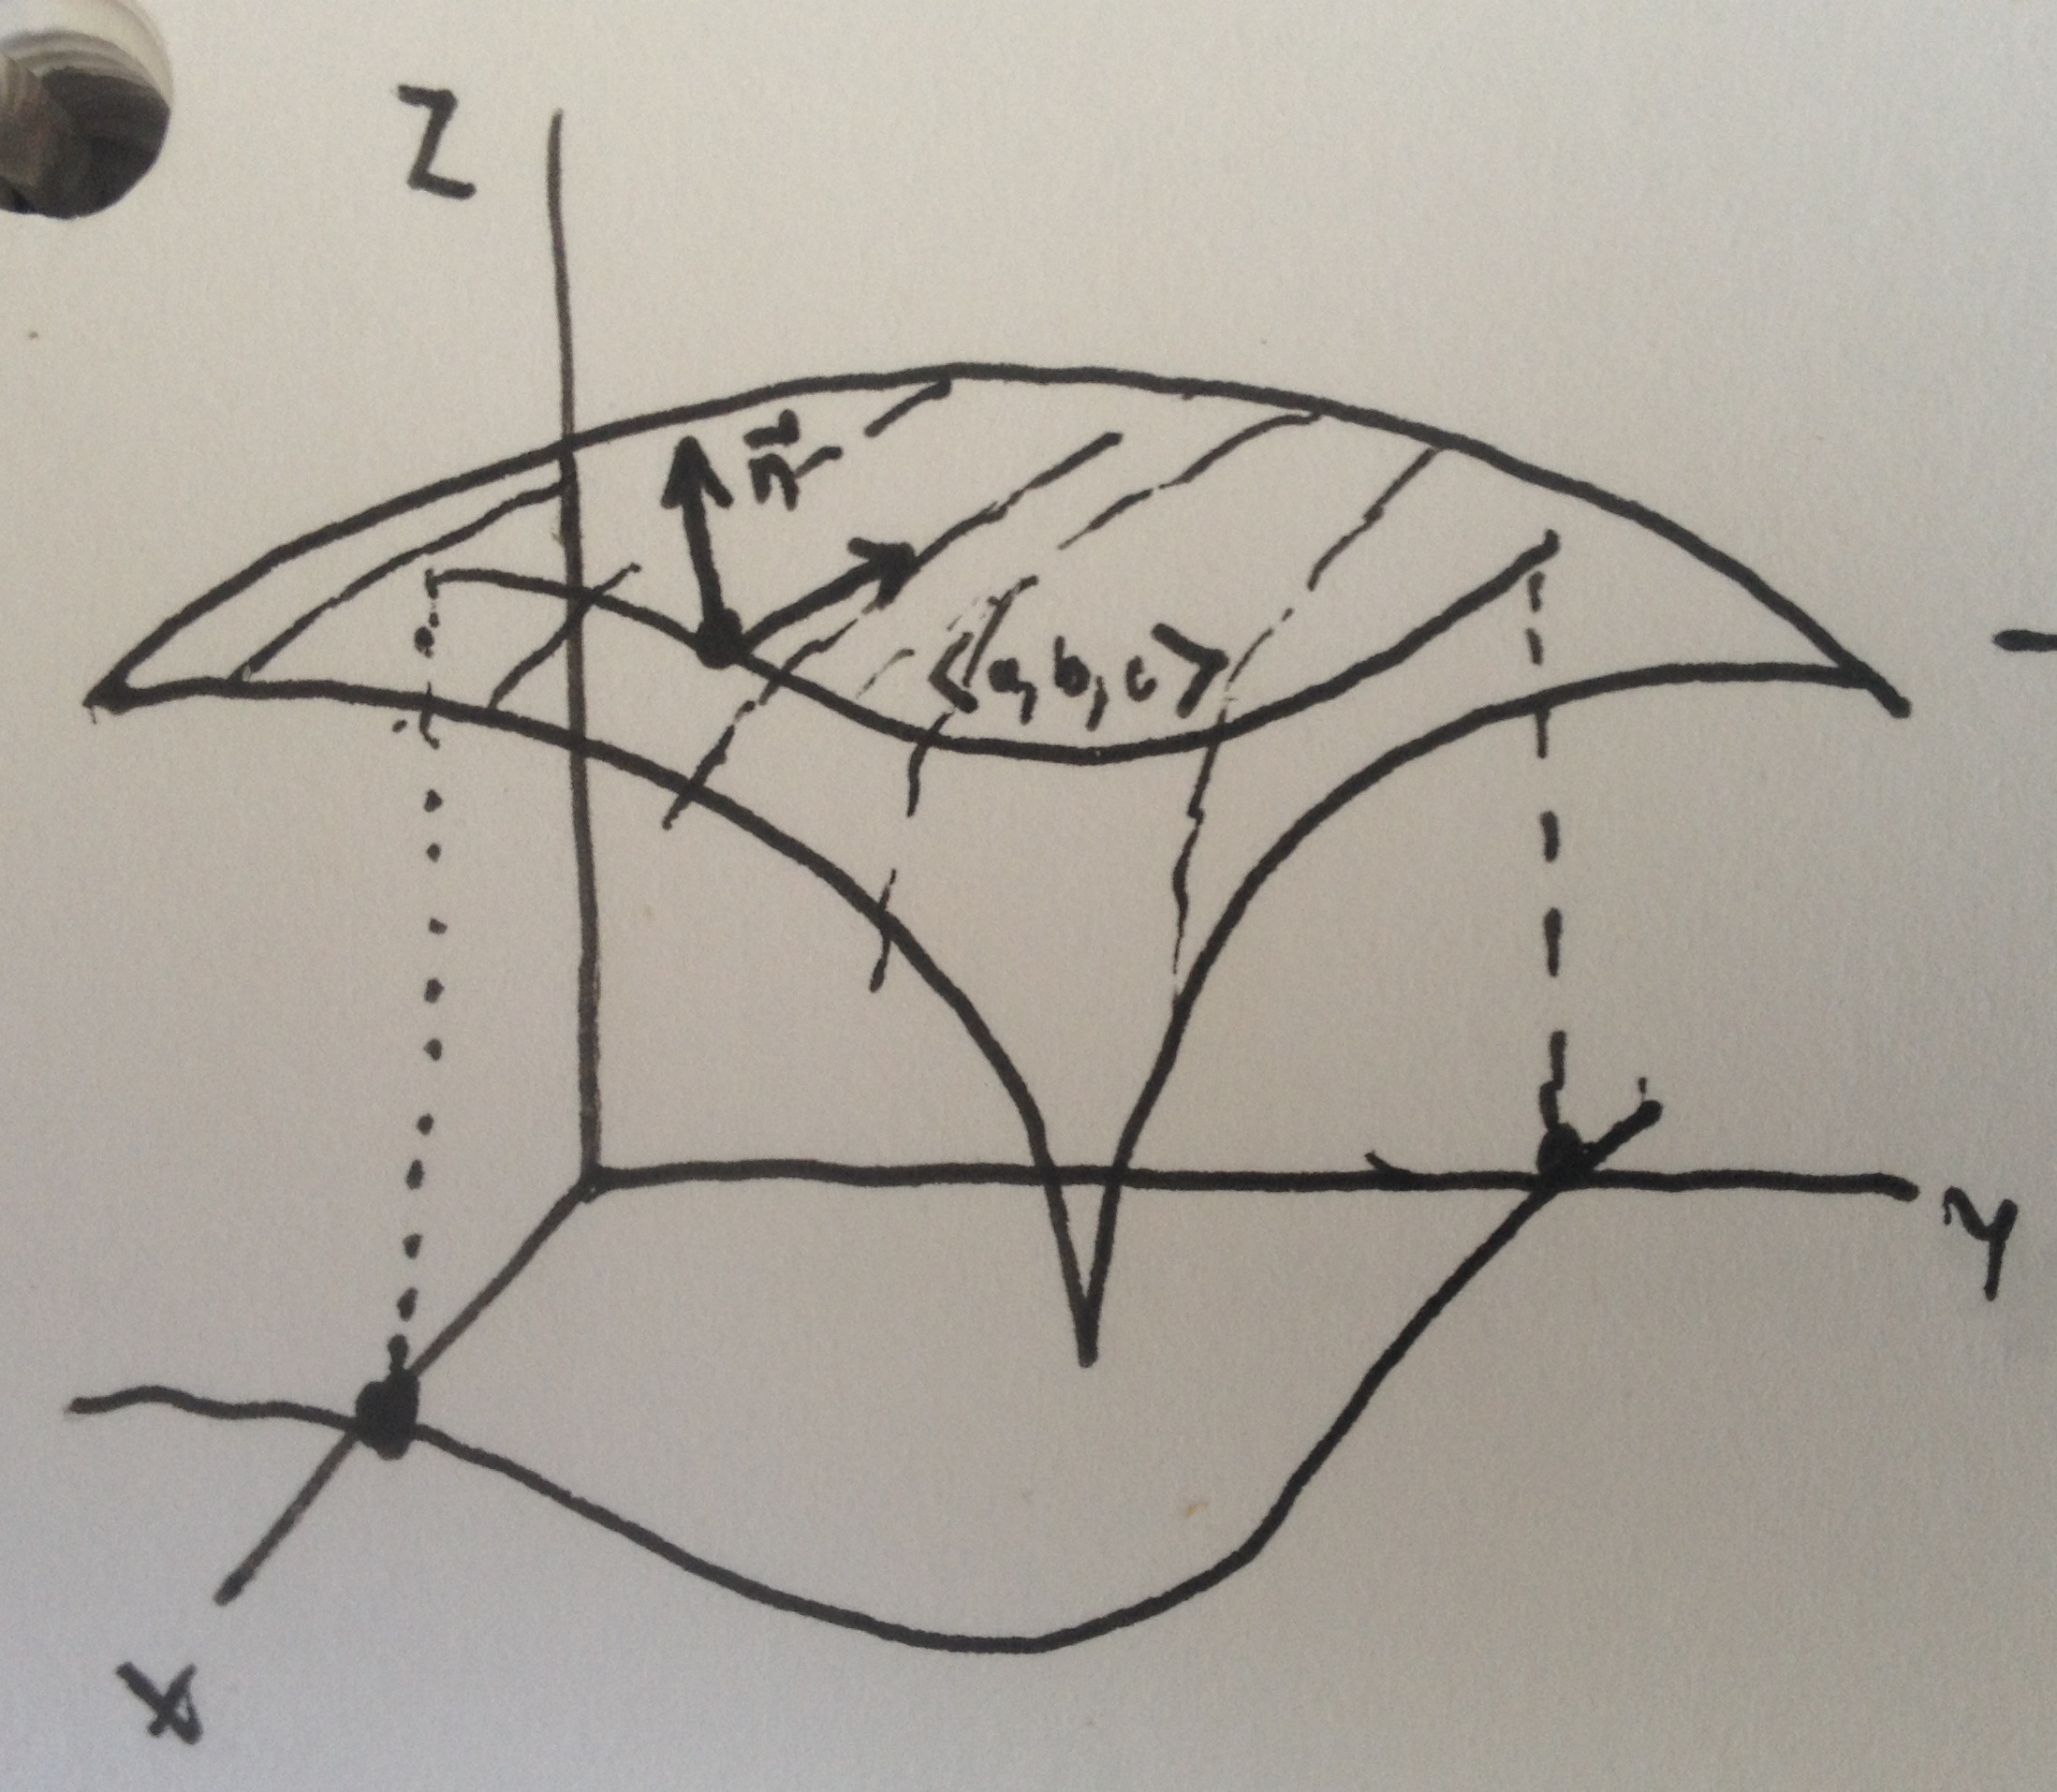 Z
n⃗
<a, b, c>
y
x